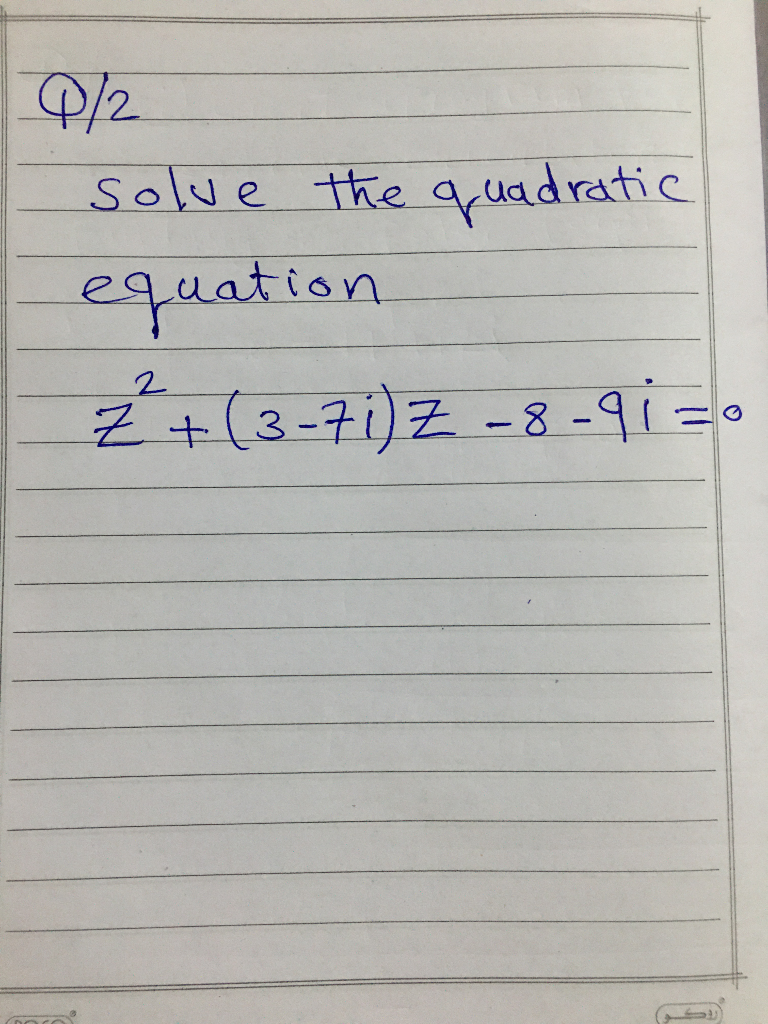 Q/2
Solve the quadratic
equation
z² + (3-7i) z - 8 - 9i = 0